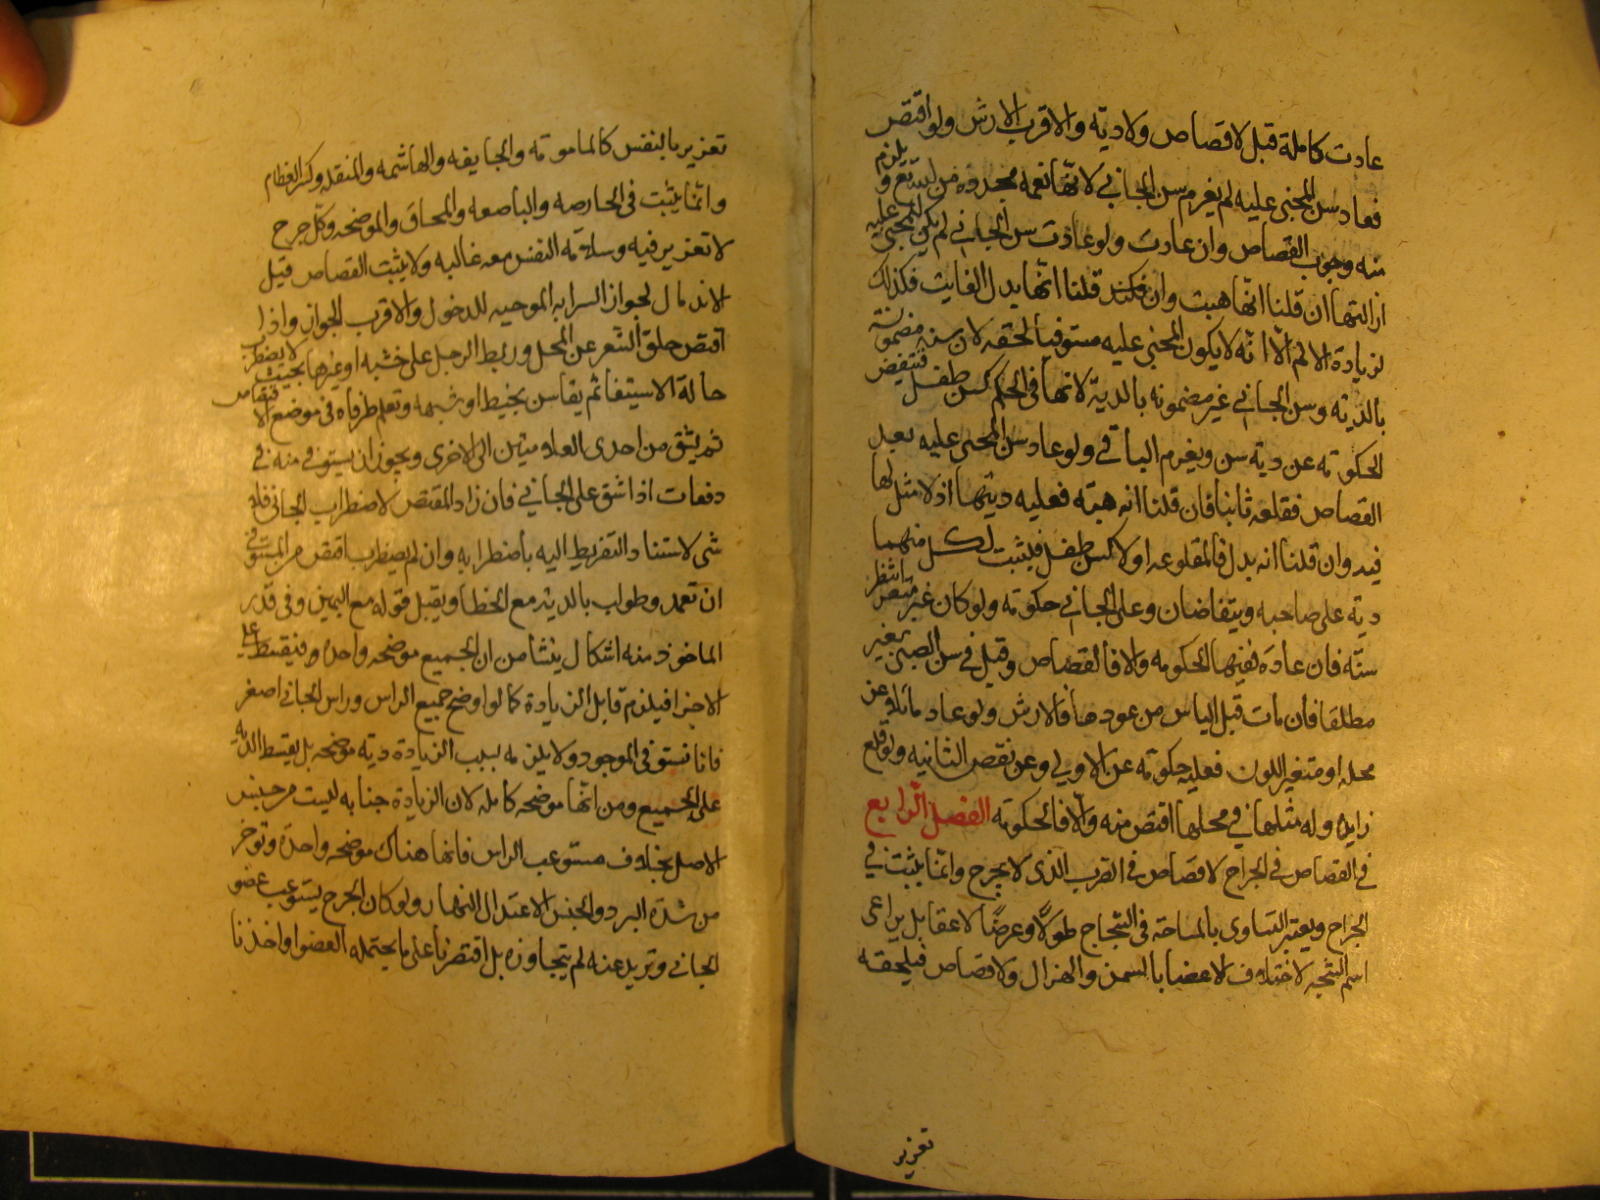 عادت كاملة قيل لا قصاص ولا دية والاقرب الارش ولو اقتص
فعاد سن المجنى عليه لم يغرم سن الجاني لانها نعمة مجددة من الله تع و يلزم
منه وجوب القصاص وان عادت ولو عادت سن الجاني لم يكن للمجنى عليه
ازالتها ان قلنا انها هبة وان قلنا انها بدل الفايت فكذلك
لزيادة الالم الا انه لا يكون المجنى عليه مستوفيا لحقه لان سنه مضمونة
بالدية وسن الجاني غير مضمونة بالدية لانها في الحكم كسن طفل فتنقص
الحكومة عن دية سن ويغرم الباقي ولو عاد سن المجنى عليه بعد
القصاص فقلعه ثانيا فان قلنا انه هبة فعليه ديتها اذ لا مثل لها
فيه وان قلنا انه بدل فالمقلوعة اولا كسن طفل فيثبت لكل منهما
دية على صاحبه ويتقاصان وعلى الجاني حكومة ولو كان غير مثغر انتظر
سنة فان عادة ففيها الحكومة والا فالقصاص وقيل في سن الصبي بعير
مطلقا فان مات قبل الياس من عودها فالارش ولو عاد مائلا عن
محله او متغير اللون فعليه حكومة عن الاولى وعن نقص الثانية ولو قلع
زايدة وله مثلها في محلها اقتص منه والا فالحكومة الفصل الرابع
في القصاص في الجراح لا قصاص في الضرب الذي لا يجرح وانما يثبت في
الجراح ويعتبر التساوى بالمساحة في الشجاج طولا وعرضا لا عمقا بل يراعى
اسم الشجة لاختلاف الاعضا بالسمن والهزال ولا قصاص فيما فيه
تعزير
تعزير بالنفس كالمامومة والجايفه والهاشمه والمنقله وكسر العظام
وانما يثبت في الحارصه والباضعه والسمحاق والموضحه وكل جرح
لا تعزير فيه وسلامة النفس معه غالبه ولا يثبت القصاص قبل
الاندمال لجواز السراية الموجبه للدخول والاقرب الجواز واذا
اقتص حلق الشعر عن المحل وربط الرجل على خشبه او غيرها بحيث لا يضطرب
حالة الاستيفا ثم يقاس بخيط او شبهه وتعلم طرفاه في موضع الا
ثم يشق من احدى العلامتين الى الاخرى ويجوز ان يستوفي منه في
دفعات اذا شق على الجاني فان زاد المقتص لاضطراب الجاني فلا
شى لاستناد التفريط اليه باضطرابه وان لم يضطرب اقتص من المستوفي
ان تعمد وطولب بالدية مع الخطا ويقبل قوله مع اليمين وفي قدر
الماخوذ منه اشكال ينشا من ان الجميع موضحه واحدة فيقسط على
الاجزا فيلزم قابل الزيادة كما لو اوضح جميع الراس وراس الجاني اصغر
فانا نستوفي الموجود ولا يلزمه بسبب الزيادة دية موضحه بل يقسط الدية
على الجميع ومن انها موضحه كامله لان الزيادة جناية ليست من جنس
الاصل بخلاف مستوعب الراس فانها هناك موضحه واحدة وتوخر
من شدة البرد والحر الى اعتدال النهار ولو كان الجرح يستوعب عضو
الجاني وتزيد عنه لم يتجاوزه بل اقتصرنا على ما يحتمله العضو واخذنا